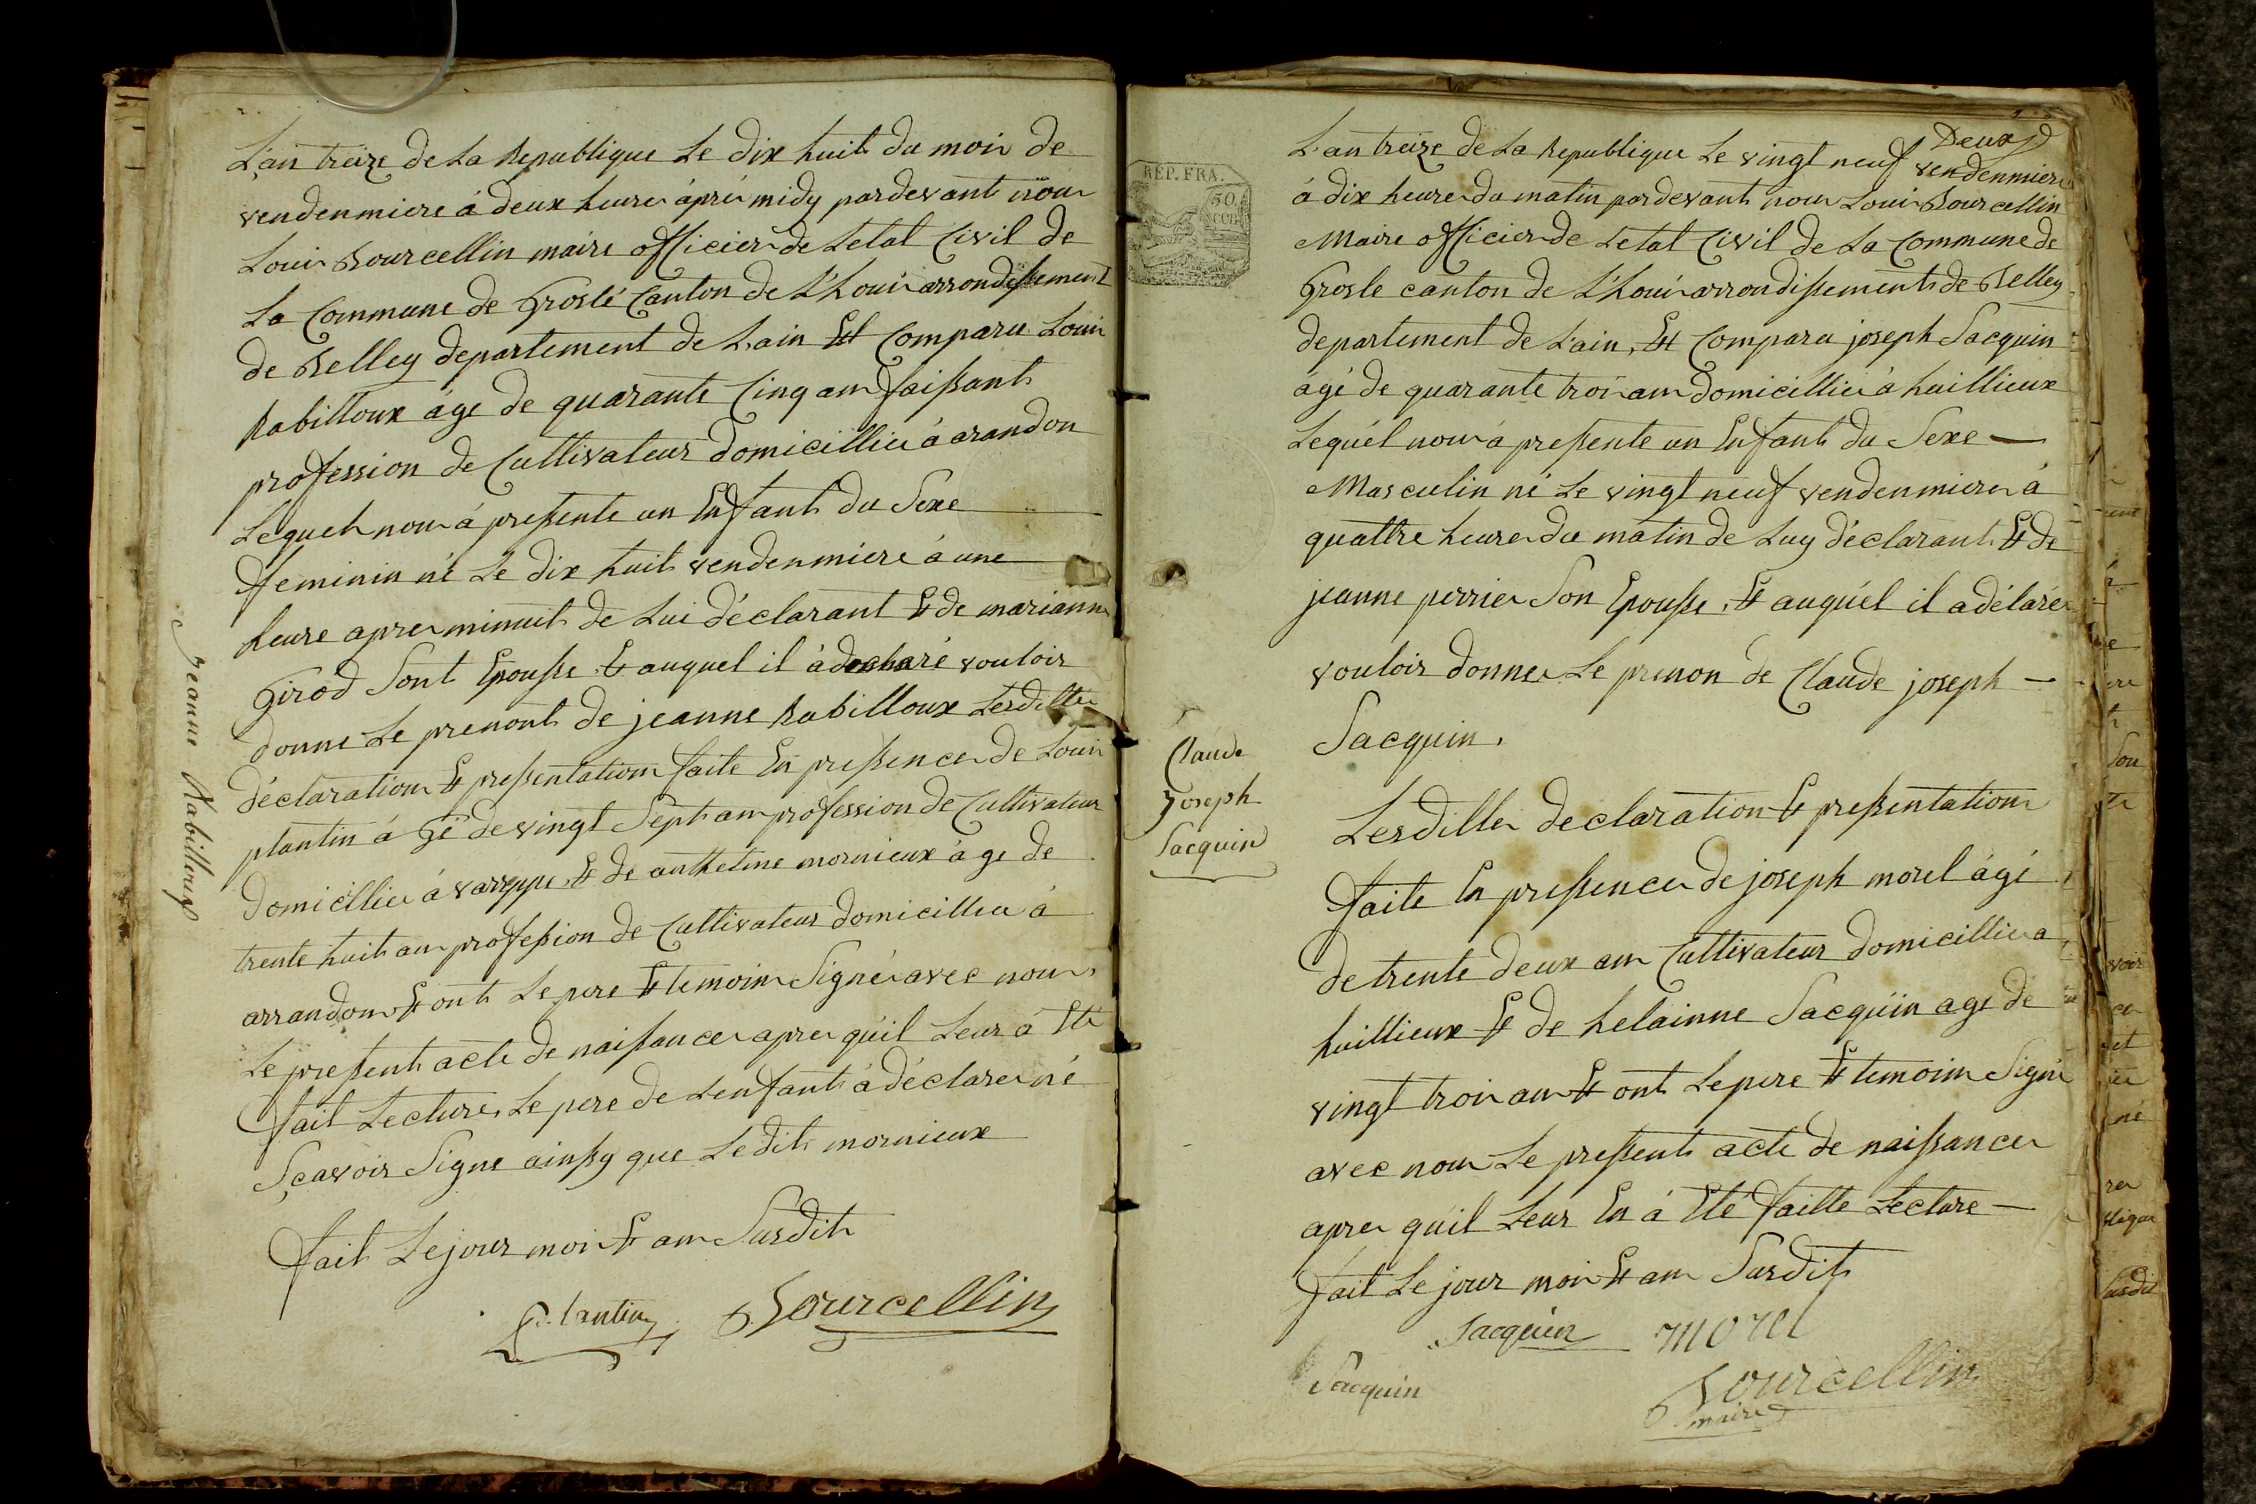 L'an treize de La Republique Le dix huit du moi de
vendenmiere á deux heure ápré midy pardevant nou
Loui Bourcellin maire officier de Letat Civil de
La Commune de Groslé Canton de L'houi arrondissement
de Belley departement de L'ain Est Comparu Loui
Rabilloux áge de quarante Cinq an faissant
profession de Cultivateur domicillié á arandon
Lequel nou á pressente un Enfant du Sexe
feminin né Le dix huit vendenmiere á une
heure apre minuit de Lui déclarant Et de mariann
Girod Sont Epousse Et auquel il á declaré vouloir
donne Le prenont de jeanne Rabilloux Lesditte
déclaration Et pressentation faite En pressence de Loui
plantin á Gé de vingt Sept an profession de Cultivateur
domicillié á vareppe Et de anthelme mornieux áge de
trente huit an profession de Cultivateur domicillié á
arrandon Et ont Le pere Et temoin Signé avec nou
Le pressent acte de naissance apre quil Leur á Eté
fait Lecture, Le pere de Lenfant á déclare né
Sçavoir Signe ainssy que Ledit mornieux
fait Le jour moi Et an Susdit
Plantin Bourcellin
Jeanne Rabilloux
Deux
L'an treize de La Republique Le vingt neuf vendenmiere
á dix heure du matin pardevant nou Loui Bourcellin
Maire officier de Letat Civil de La Commune de
Grosle canton de L'houi arrondissement de Belley
departement de L'ain, Est Comparu joseph Sacquin
ágé de quarante troi an domicillié á huillieux
Lequél nou á pressente un Enfant du Sexe —
Masculin né Le vingt neuf vendenmiere á
quattre heure du matin de Luy déclarant Et de
jeanne perrier Son Epousse, Et auquél il a délaré
vouloir donne Le prenon de Claude joseph —
Sacquin.
Lesditte declaration Et pressentation
faite En pressence de joseph morel ágé
de trente deux an Cultivateur domicillié a
huillieux Et de helainne Sacquin age de
vingt troi an Et ont Le pere Et temoin Signé
avec nou Le pressent acte de naissance
apre quil Leur En á Eté faitte Lecture —
fait Le jour moi Et an Susdit
Sacquin morel
Sacquin Bourcellin
maire
REP. FRA.
50
Claude
Joseph
Sacquin